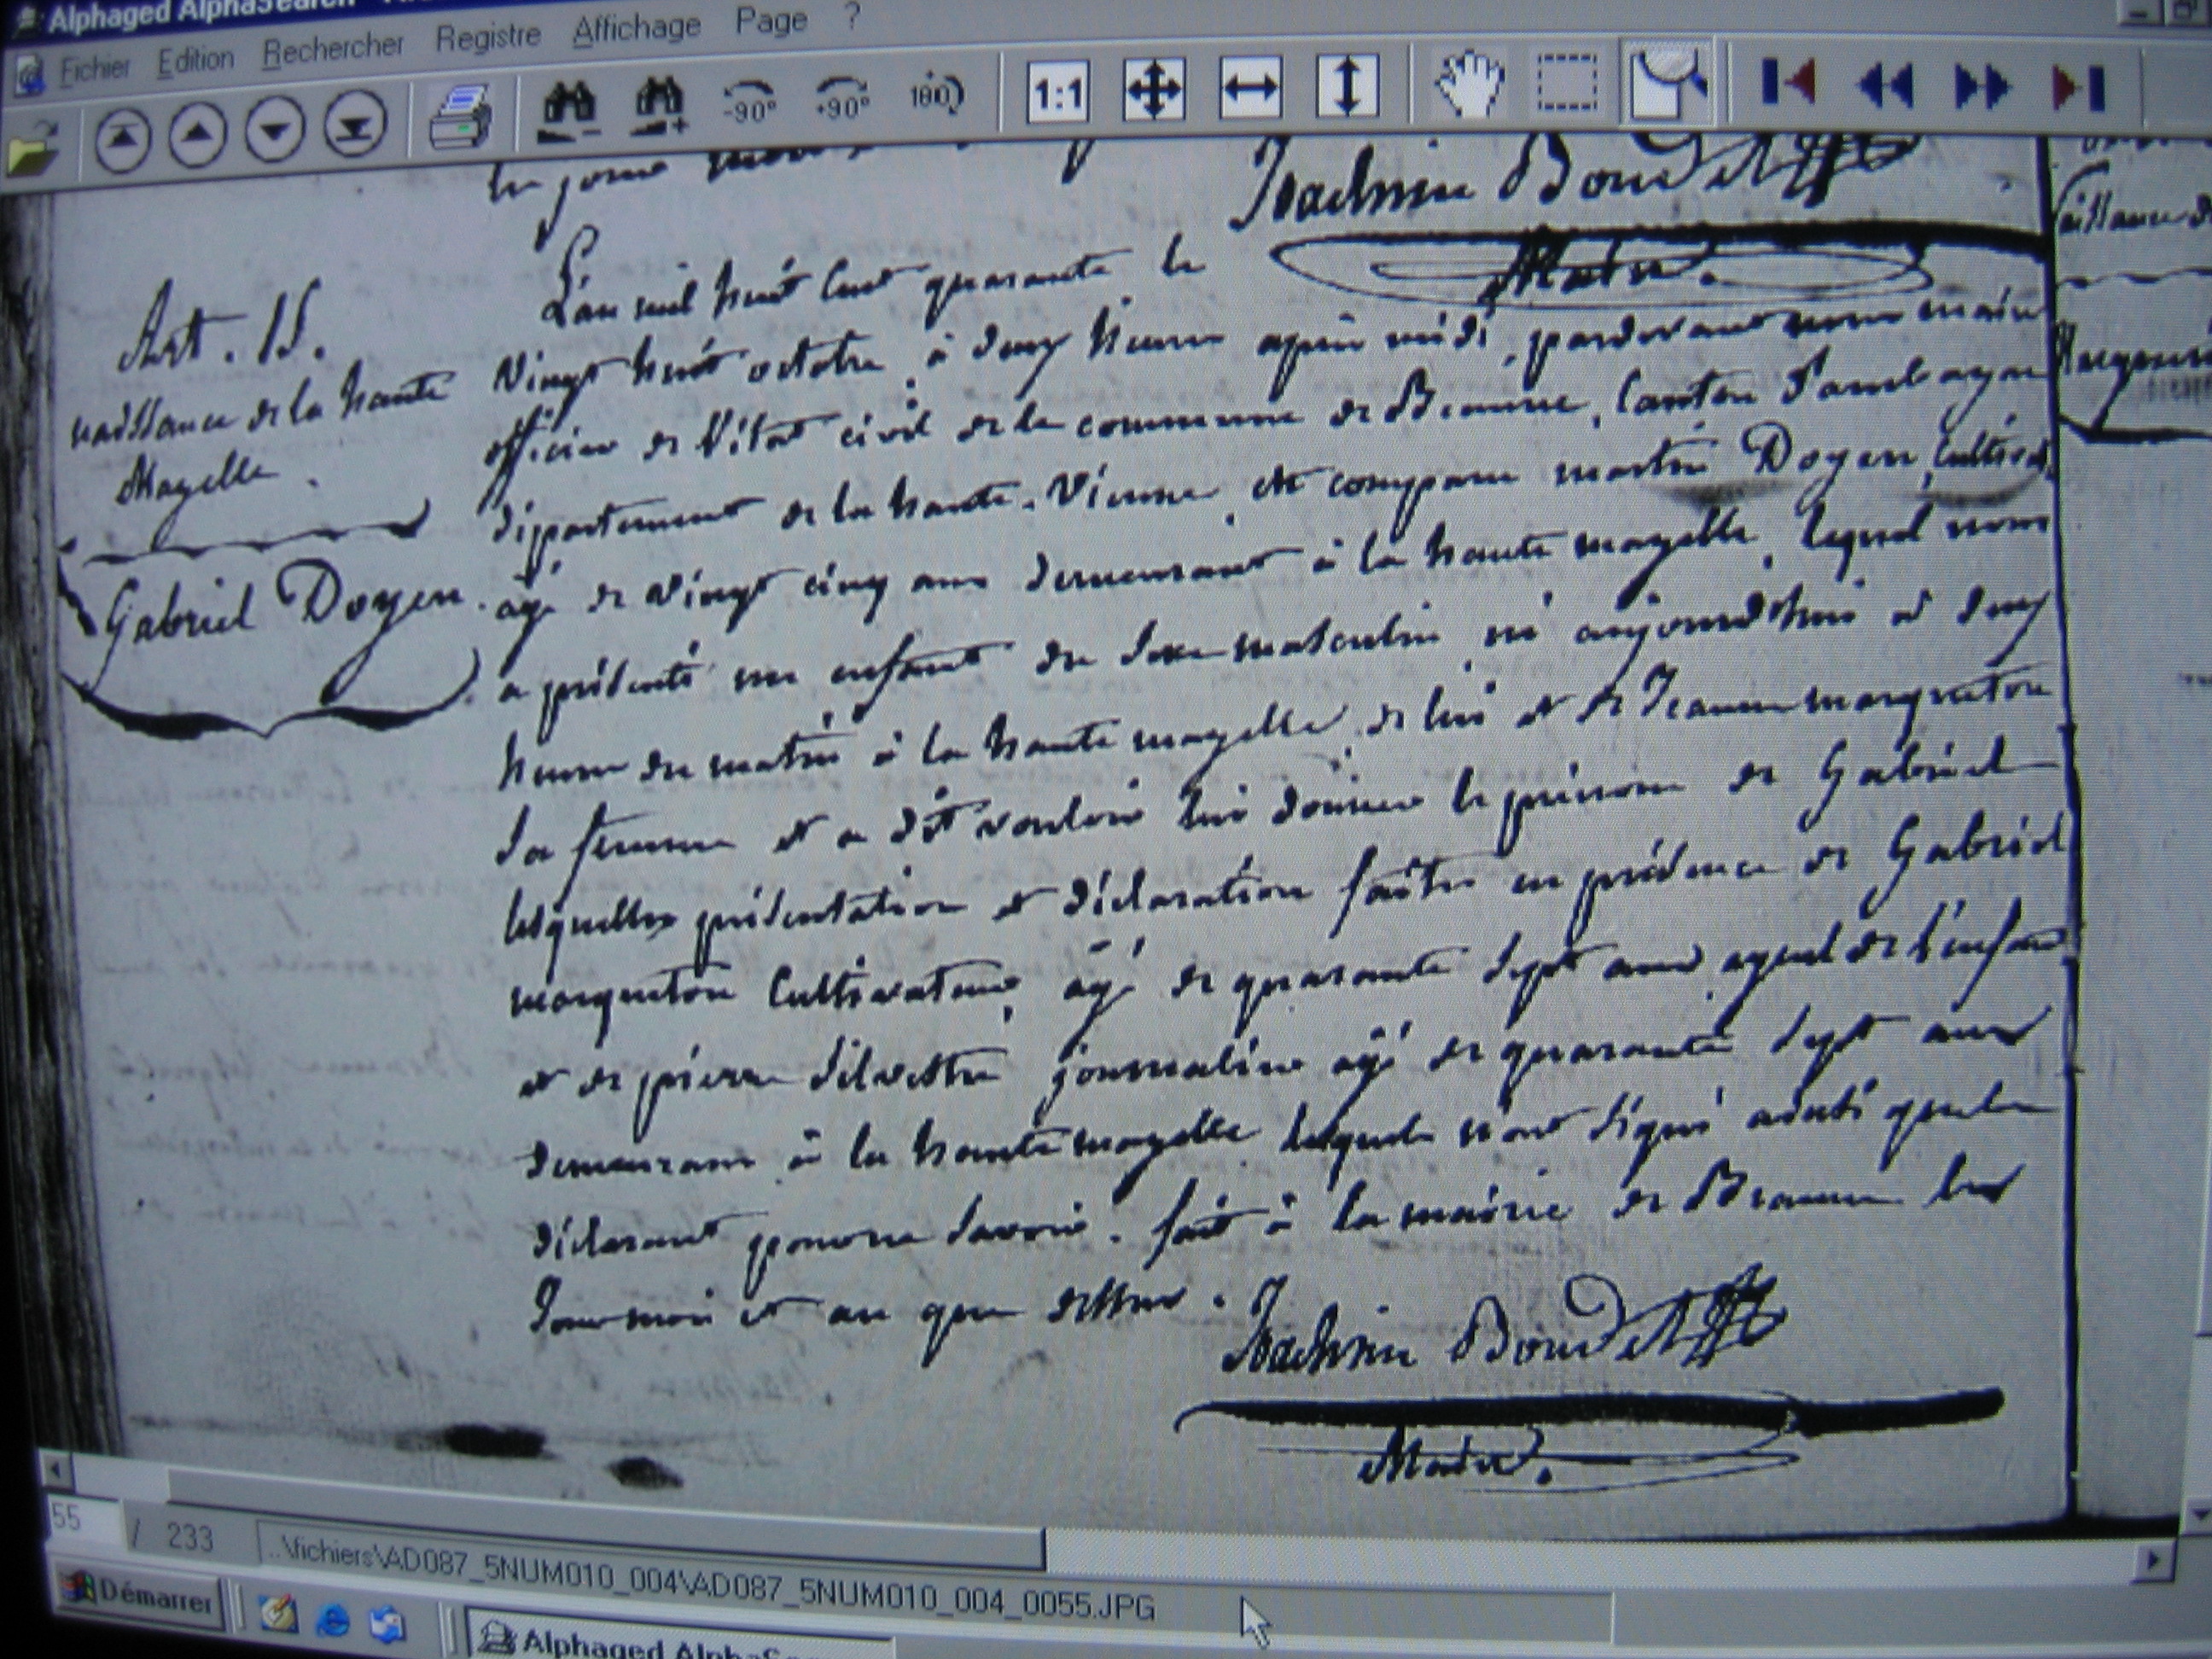 Alphaged AlphaSearch -
Fichier Edition Rechercher Registre Affichage Page ?
-90° +90° 180 1:1
Joachim Boudet
Maire.
Art. 15.
naissance de la haute
Mazelle.
Gabriel Doyen.
L'an mil huit cent quarante le
vingt huit octobre à deux heures après midi, pardevant nous maire
officier de l'état civil de la commune de Beaune, canton d'ambazac
département de la haute-Vienne, est comparu martin Doyen, Cultivat.
agé de vingt cinq ans demeurant à la haute mazelle, lequel nous
a présenté un enfant du sexe masculin né aujourd'hui à deux
heures du matin à la haute mazelle, de lui et de Jeanne marqueton
sa femme et a dit vouloir lui donner le prénom de Gabriel
lesquelles présentation et déclaration faites en présence de Gabriel
marqueton Cultivateur, agé de quarante sept ans ayeul de l'enfant
et de pierre Silvestre journalier agé de quarante sept ans
demeurans à la haute mazelle lesquels n'ont signé ainsi que le
déclarant pour ne savoir. fait à la mairie de Beaune les
Jour mois et an que dessus.
Joachim Boudet
Maire.
55 / 233 ..\fichiers\AD087_5NUM010_004\AD087_5NUM010_004_0055.JPG
Démarrer Alphaged AlphaSea